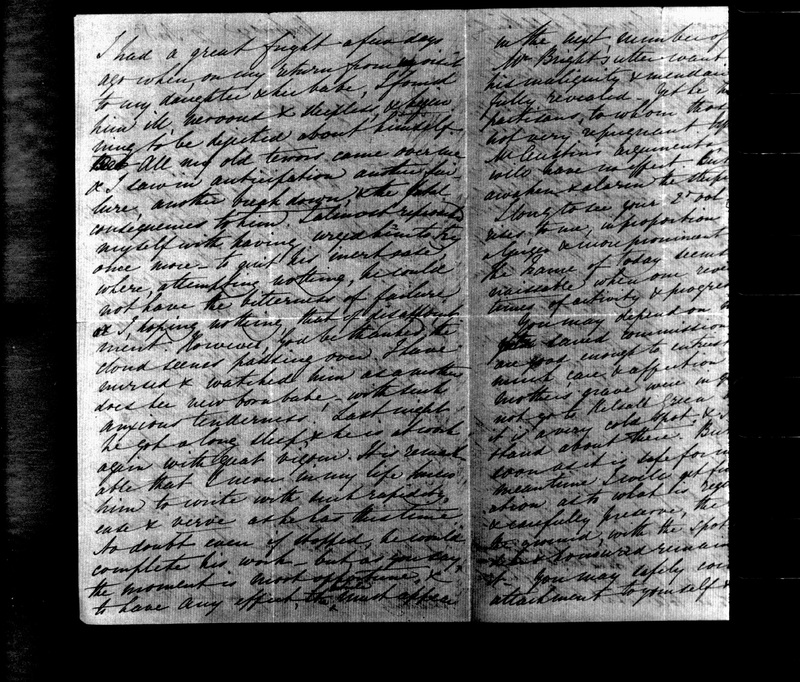 I had a great fright a few days
ago when, on my return from a visit
to my daughter & her babe, I found
him ill, nervous & sleepless, & begin
ning to be dejected about himself
All my old terrors came over me
& I saw in anticipation another fai
lure, another break down, & the fatal
consequences to him. I almost reproached
myself with having urged him to try
once more - to quit his inert oasis,
where, attempting nothing, he could
not have the bitterness of failure
or I, hoping nothing, that of disappoint
ment. However, God be thanked, the
cloud seems passing over. I have
nursed & watched him as a mother
does her new born babe with such
anxious tenderness! Last night
he got a long sleep & he is at work
again with great vigour. It is remark
able that I never in my life knew
him to write with such rapidity,
ease & verve as he has this time
No doubt even if stopped, he would
complete his work - but, as you say,
the moment is most opportune, &
to have any effect, the must appear
in the next number of
Mr Bright's utter want
his malignity & mendac
fully revealed. Yet he
partisans, to whom those
not very repugnant
McCunn's argument
will have no effect but
awaken & alarm the
I long to see your 2d vol
rises to me, in proportion
a larger & more prominent
the France of today seems
when one reve
times of activity & progres
You may depend on
sacred commission
are good enough to entrust
much care & affection
mother's grave were in
not go to Kelsall Green
it is a very cold spot &
stand about there. But
soon as it is safe for m
meantime I will get
ation as to what is req
& carefully preserve, the
ground, with the spot
& honoured remains
it - You may safely con
attachment to yourself &